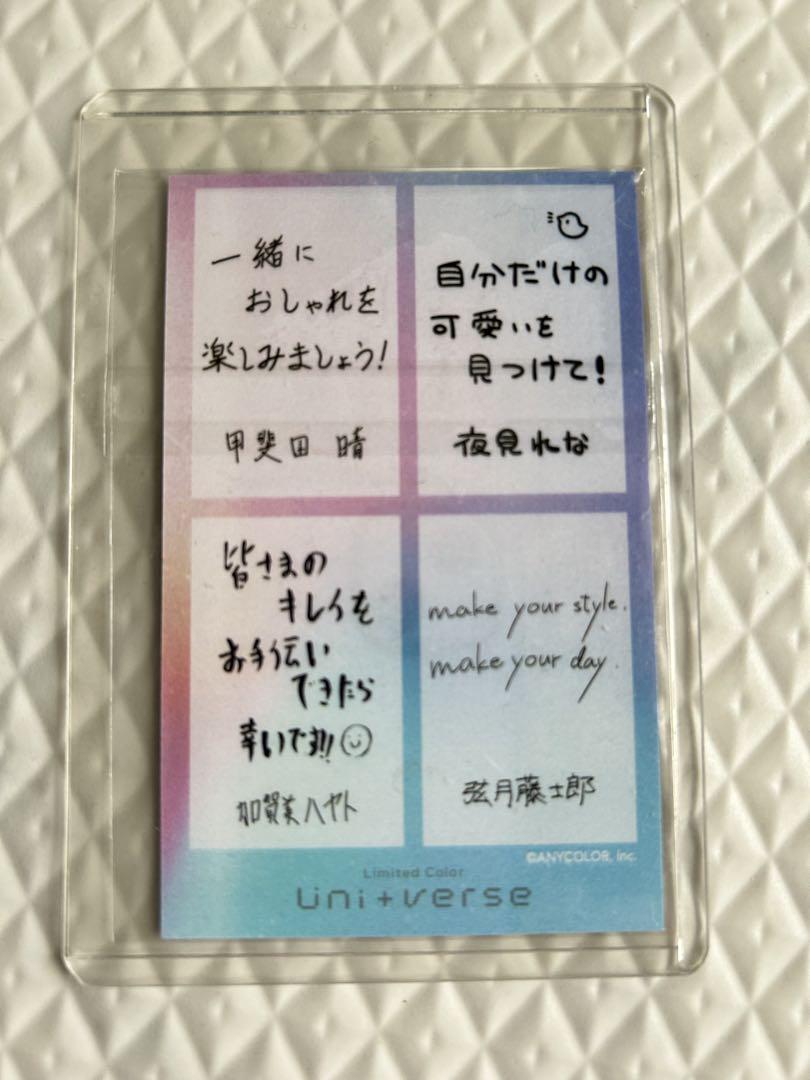 一緒に
おしゃれを
楽しみましょう!
甲斐田 晴
自分だけの
可愛いを
見つけて!
夜見れな
皆さまの
キレイを
お手伝い
できたら
幸いです!!
加賀美ハヤト
make your style.
make your day.
弦月藤士郎
©ANYCOLOR, Inc.
Limited Color
uni+verse